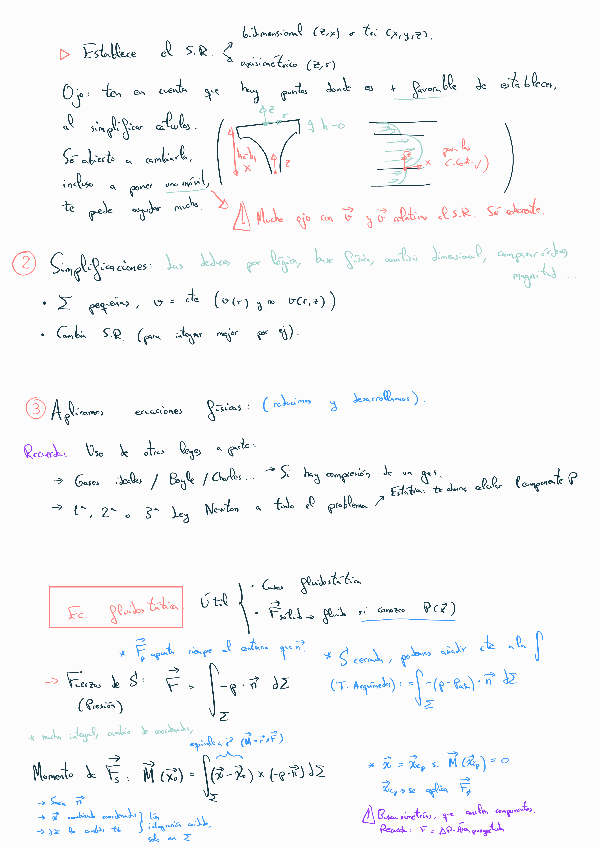 bidimensional (z,x) o tri (x,y,z).
▷ Establece el S.R. {
axisimétrico (z,r)
Ojo: ten en cuenta que hay puntos donde es + favorable de establecer,
al simplificar cálculos.
Sé abierto a cambiarlo,
incluso a poner uno móvil,
te puede ayudar mucho.
z
r
h=0
x
z
x
⚠ Mucho ojo con v y v relativa al S.R. Sé coherente.
② Simplificaciones: Las deduces por lógica, base física, análisis dimensional, comparar órdenes
magnitud ...
• Σ pequeñas, v = cte (v(r) y no v(r,z))
• Cambia S.R. (para integrar mejor por ej).
③ Aplicamos ecuaciones físicas: (reducimos y desarrollamos).
Recuerda: Uso de otras leyes a parte:
→ Gases ideales / Boyle / Charles... → Si hay compresión de un gas.
→ 1ª, 2ª o 3ª Ley Newton a todo el problema ↗ Estática: te
Ec. fluidostática
Útil {
• Casos fluidostática
• F solid → fluido si conozco P(z)
* Fp apunta siempre al contrario que n
* S cerrada, podemos añadir cte a la ∫
→ Fuerzas de S: F = ∫ -p · n dΣ
Σ
(Presión)
(T. Arquímedes): = ∫ -(p - Patm) · n dΣ
Σ
* mucha integral, cambio de coordenadas,
equivale a r (M = r x F)
Momento de Fs: M (x₀) = ∫ (x - x₀) × (-p · n) dΣ
Σ
* x = xcp si M (xcp) = 0
xcp → se aplica Fp
→ Sacar n
→ x cambiando coordenadas
→ dΣ lo cambias tb
} Lím
integración cuidado,
solo en Σ
⚠ Buscar simetrías, que anulan componentes.
Recuerda: F = ΔP · Área proyectada